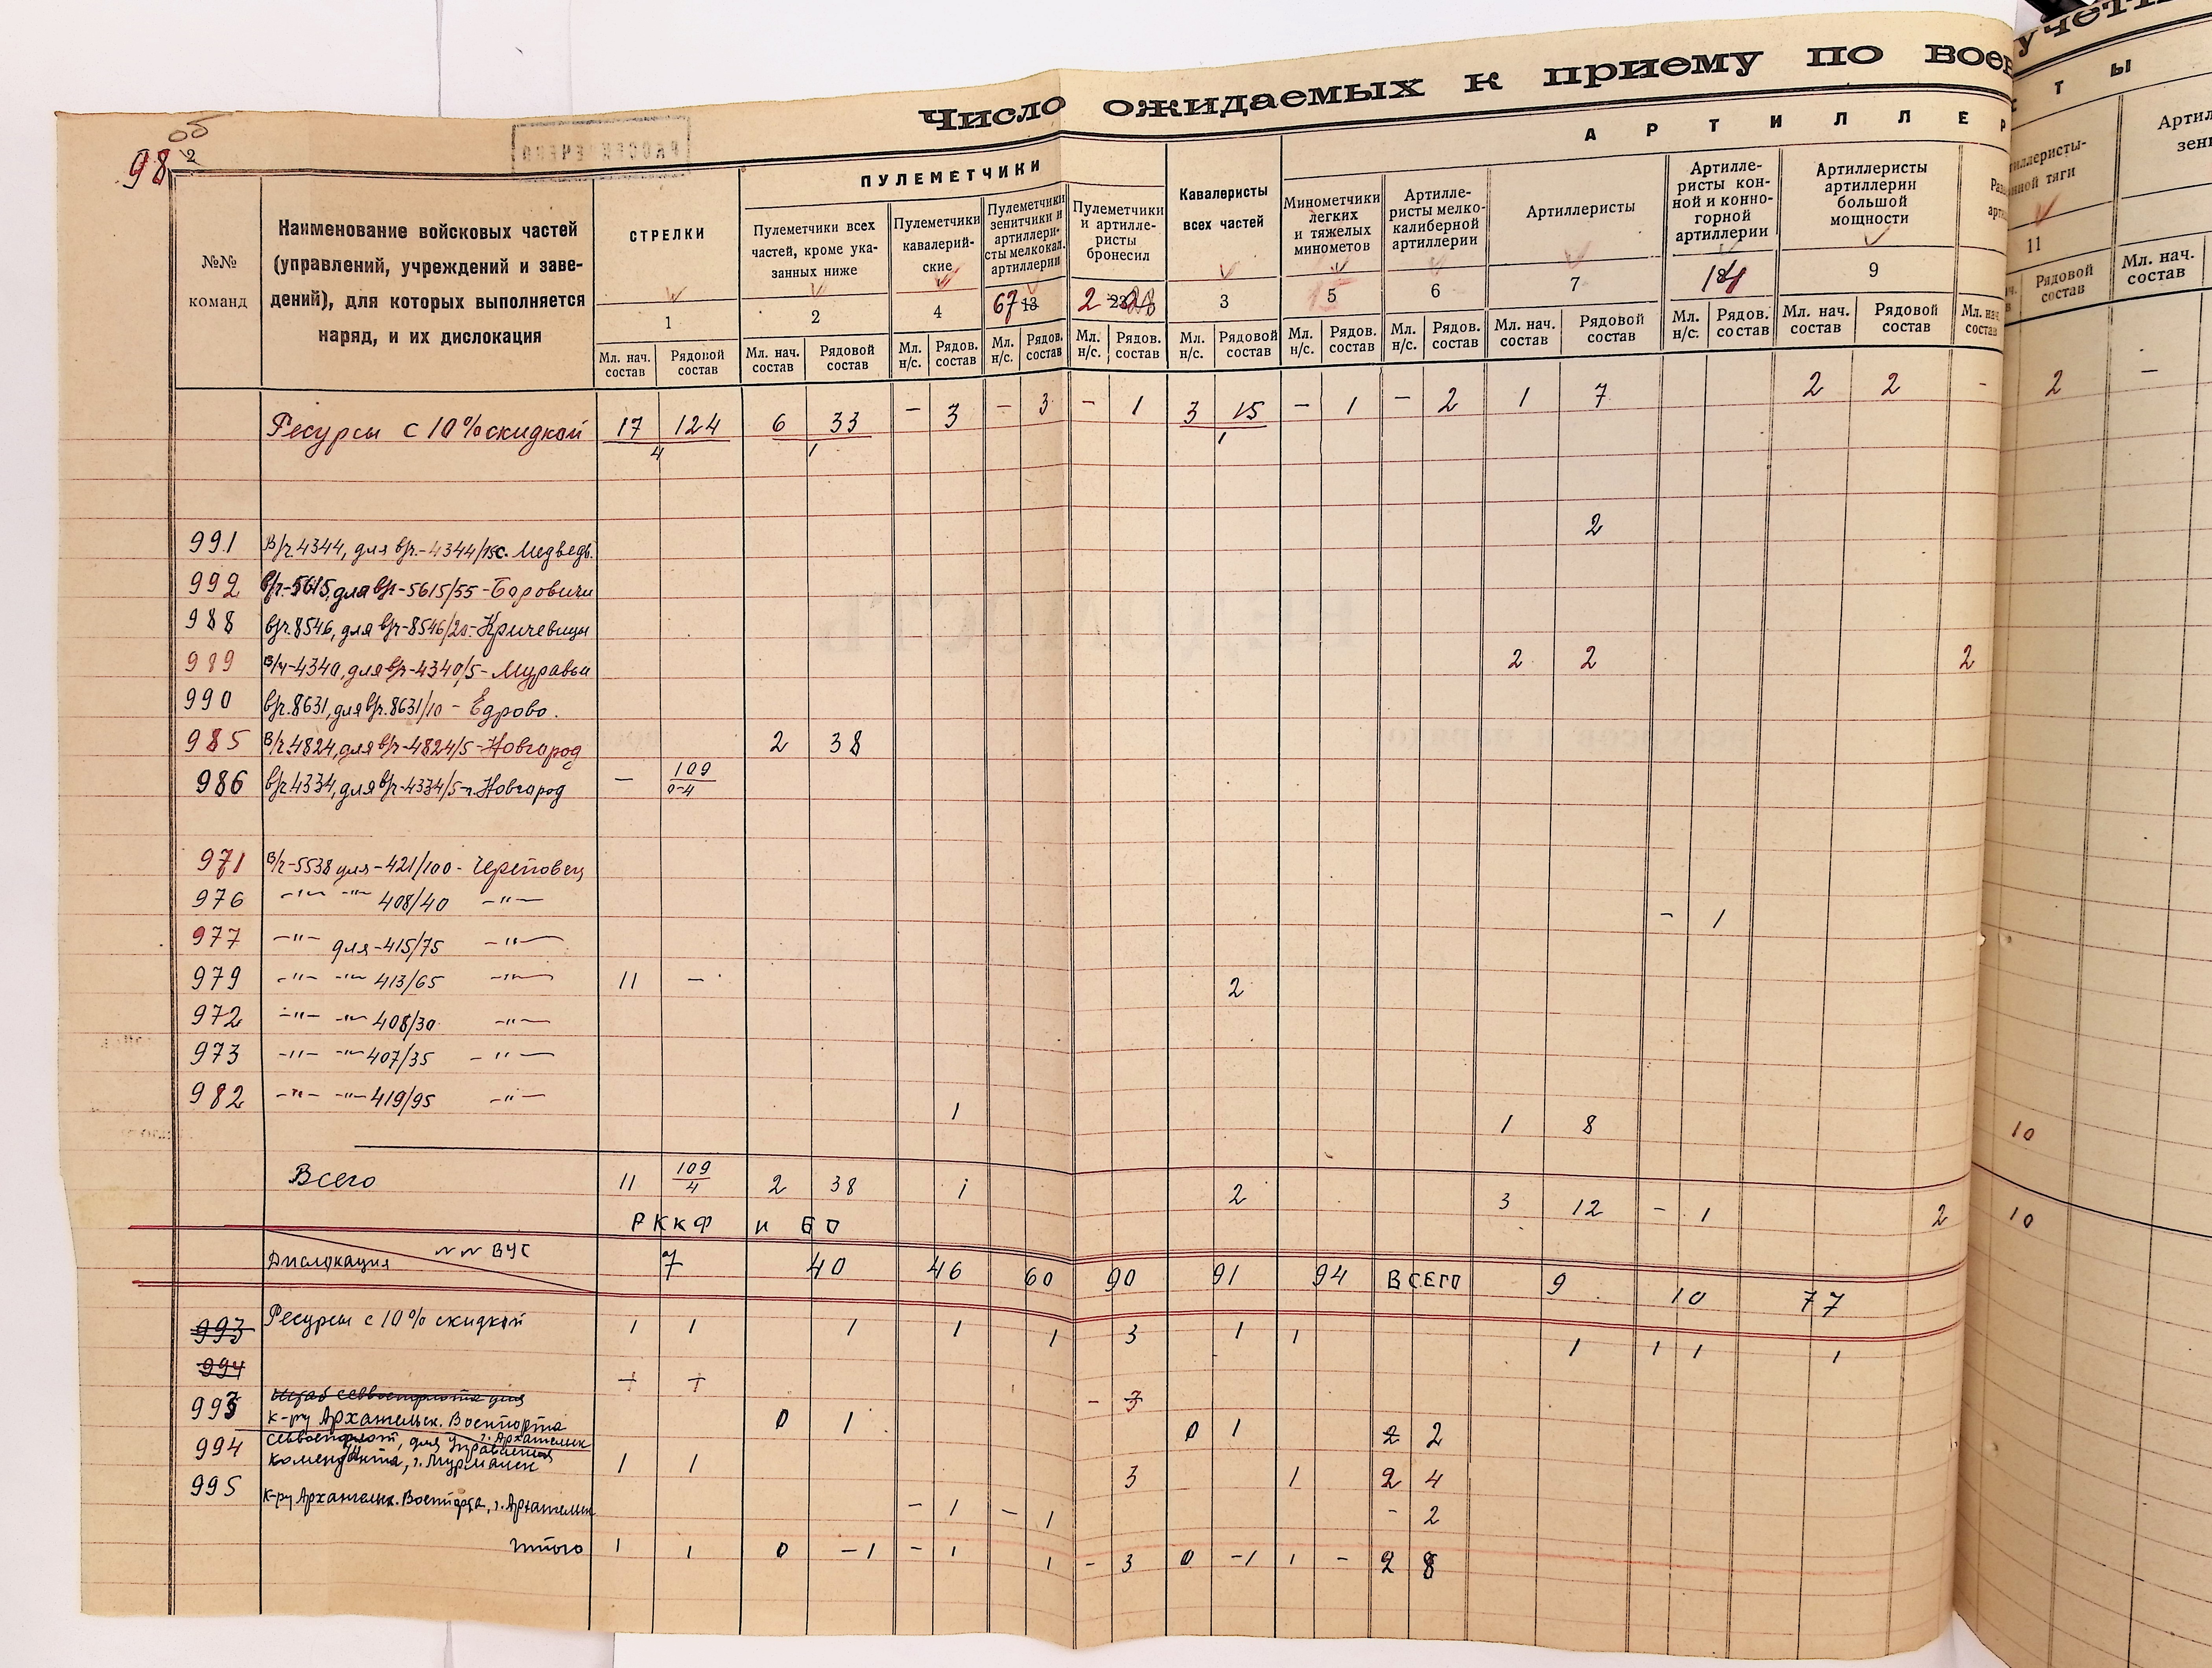 Число ожидаемых к приему по воен
учетн
об
98
2
РАССЕКРЕЧЕНО
№№
команд
Наименование войсковых частей
(управлений, учреждений и заве-
дений), для которых выполняется
наряд, и их дислокация
СТРЕЛКИ
1
Мл. нач. состав Рядовой состав
ПУЛЕМЕТЧИКИ
Пулеметчики всех
частей, кроме ука-
занных ниже
2
Мл. нач. состав Рядовой состав
Пулеметчики
кавалерий-
ские
4
Мл. н/с. Рядов. состав
Пулеметчики
зенитчики и
артиллери-
сты мелкокал.
артиллерии
67 13
Мл. н/с. Рядов. состав
Пулеметчики
и артилле-
ристы
бронесил
2 28
Мл. н/с. Рядов. состав
Кавалеристы
всех частей
3
Мл. н/с. Рядовой состав
АРТИЛЛЕР
Минометчики
легких
и тяжелых
минометов
5
Мл. н/с. Рядов. состав
Артилле-
ристы мелко-
калиберной
артиллерии
6
Мл. н/с. Рядов. состав
Артиллеристы
7
Мл. нач. состав Рядовой состав
Артилле-
ристы кон-
ной и конно-
горной
артиллерии
14
Мл. н/с. Рядов. состав
Артиллеристы
артиллерии
большой
мощности
9
Мл. нач. состав Рядовой состав
Мл. нач. состав
СТЫ
тиллеристы-
нной тяги
11
Рядовой состав
Артил
зени
Мл. нач. состав
Ресурсы с 10% скидкой 17 124 6 33 - 3 - 3 - 1 3 15 - 1 - 2 1 7 2 2 - 2 -
4 1 1
991 В/ч 4344, для в/ч-4344/15 с. Медведь. 2
992 в/ч-5615, для в/ч-5615/55-Боровичи
988 в/ч.8546, для в/ч-8546/20-Кричевицы
989 В/ч-4340, для в/ч-4340/5-Муравьи 2 2 2
990 в/ч.8631, для в/ч.8631/10 - Едрово.
985 В/ч.4824, для в/ч-4824/5-Новгород 2 38
986 в/ч 4334, для в/ч-4334/5-г. Новгород - 109
0-4
971 В/ч-5538 для-421/100-Череповец
976 -"- -"- 408/40 -"- - 1
977 -"- для-415/75 -"-
979 -"- -"- 413/65 -"- 11 - 2
972 -"- -"- 408/30 -"-
973 -"- -"- 407/35 -"-
982 -"- -"- 419/95 -"- 1 1 8 10
Всего 11 109/4 2 38 1 2 3 12 - 1 2 10
РККФ и БО
Дислокация №№ ВУС 7 40 46 60 90 91 94 ВСЕГО 9 10 77
993 Ресурсы с 10% скидкой 1 1 1 1 1 3 1 1 1 1 1 1
994
Штаб Севвоенфлота для - 3
993 к-ру Архангельск. Военпорта 0 1 0 1 2 2
г. Архангельск
994 Севвоенфлот, для Управления
коменданта, г. Мурманск 1 1 3 1 2 4
995 к-ру Архангельск. Военпорта, г. Архангельск - 1 - 1 - 2
Итого 1 1 0 -1 - 1 1 - 3 0 -1 1 - 2 8